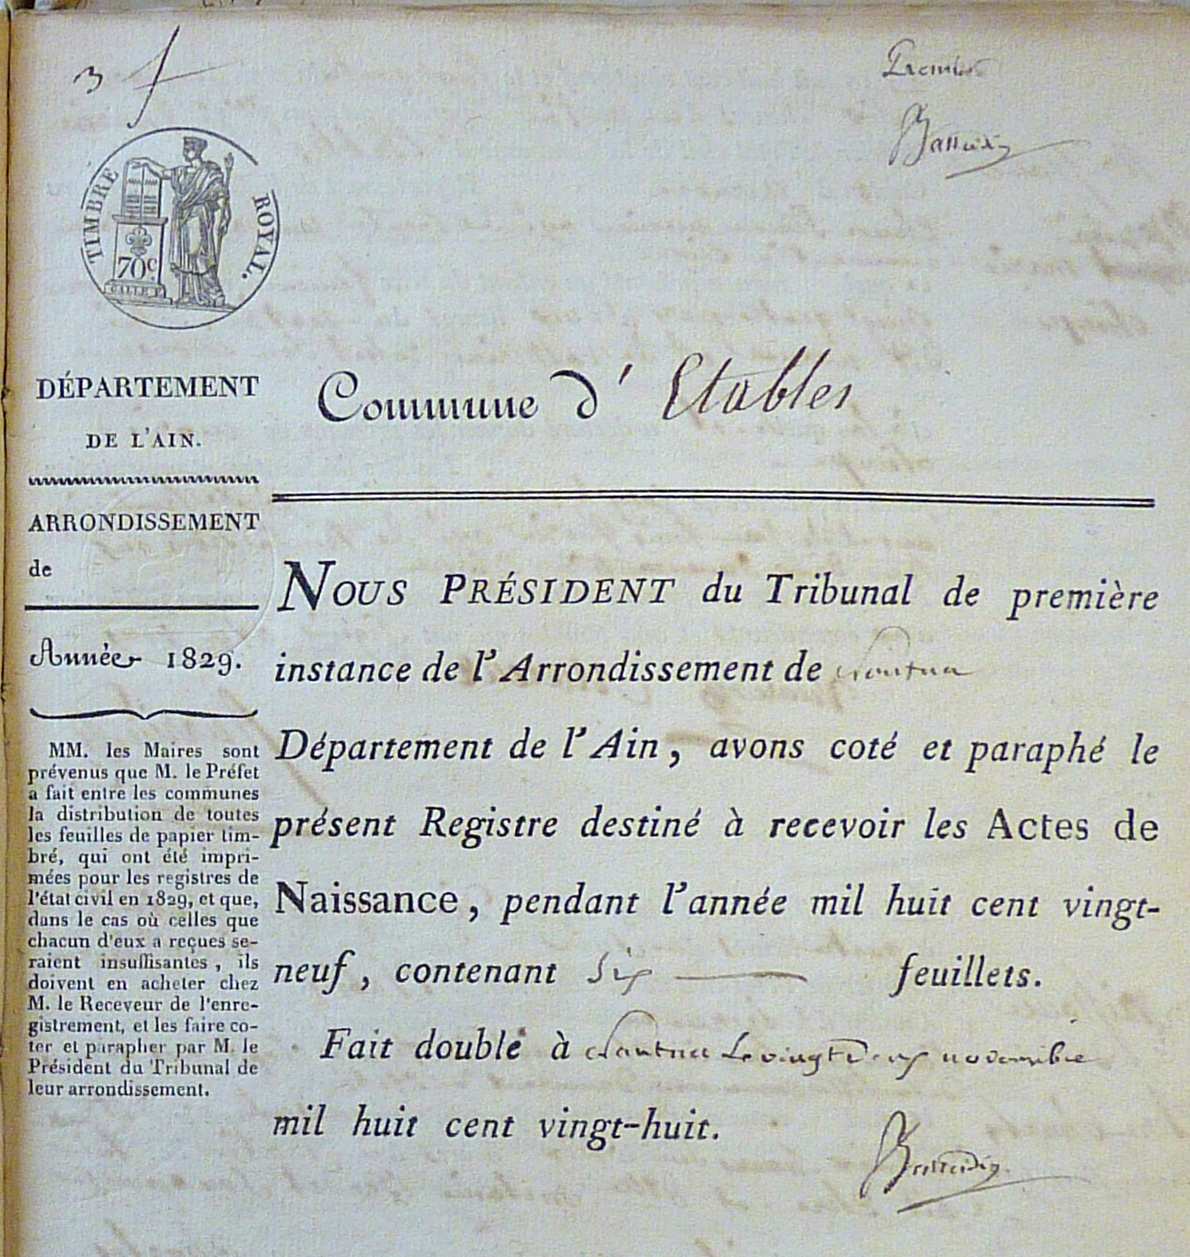 3
Premier
TIMBRE ROYAL.
70c.
DÉPARTEMENT
DE L'AIN.
Commune d' Etables
ARRONDISSEMENT
de
Année 1829.
MM. les Maires sont
prévenus que M. le Préfet
a fait entre les communes
la distribution de toutes
les feuilles de papier tim-
bré, qui ont été impri-
mées pour les registres de
l'état civil en 1829, et que,
dans le cas où celles que
chacun d'eux a reçues se-
raient insuffisantes, ils
doivent en acheter chez
M. le Receveur de l'enre-
gistrement, et les faire co-
ter et parapher par M. le
Président du Tribunal de
leur arrondissement.
NOUS PRÉSIDENT du Tribunal de première
instance de l'Arrondissement de Nantua
Département de l'Ain, avons coté et paraphé le
présent Registre destiné à recevoir les Actes de
Naissance, pendant l'année mil huit cent vingt-
neuf, contenant Six feuillets.
Fait double à Nantua Le vingt Deux novembre
mil huit cent vingt-huit.